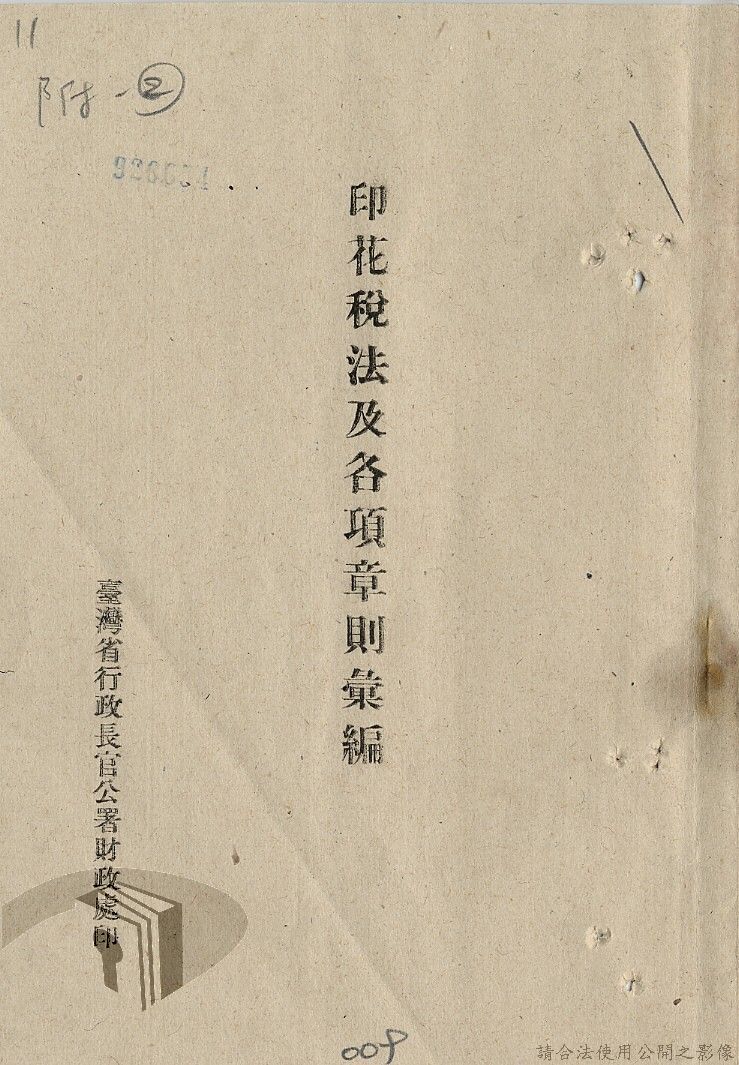 11
附一②
印花稅法及各項章則彙編
臺灣省行政長官公署財政處印
009
請合法使用公開之影像